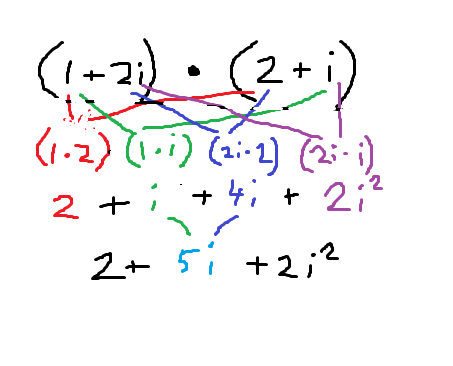 (1 + 2i) • (2 + i)
(1 · 2) (1 · i) (2i · 2) (2i · i)
2 + i + 4i + 2i²
2 + 5i + 2i²